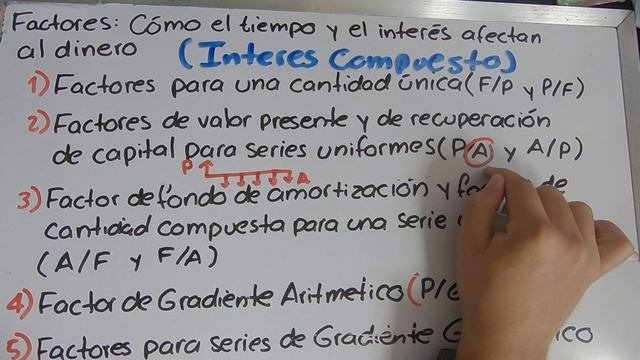 Factores: Cómo el tiempo y el interés afectan
al dinero (Interes Compuesto)
1) Factores para una cantidad única (F/P y P/F)
2) Factores de valor presente y de recuperación
de capital para series uniformes (P/A y A/P)
P A
3) Factor de fondo de amortización y de
cantidad compuesta para una serie
(A/F y F/A)
4) Factor de Gradiente Aritmetico (P/
5) Factores para series de Gradiente